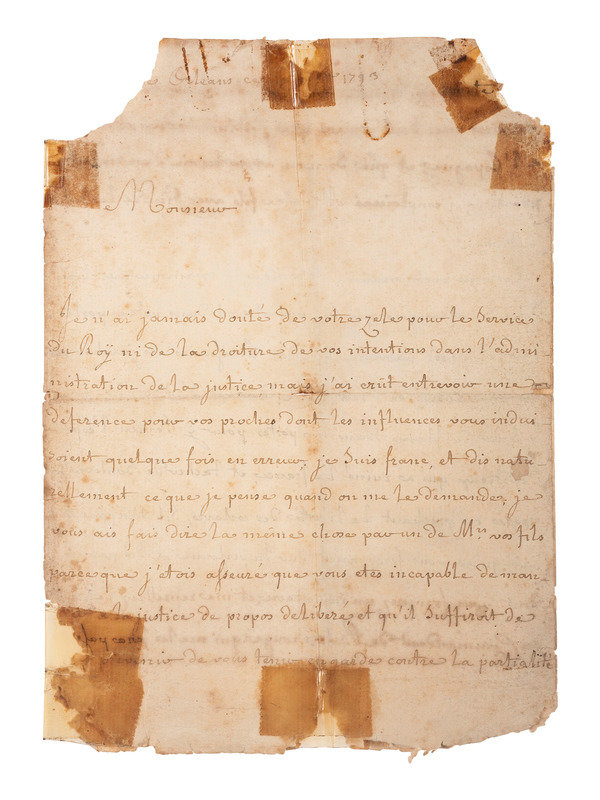 Orléans ce 1793
Monsieur
Je n'ai jamais douté de votre zele pour le Service
Du Roÿ ni de la droiture de vos intentions dans l'admi-
nistration de la justice, mais j'ai crût entrevoir une
déference pour vos proches dont les influences vous indui-
soient quelque fois en erreur, je Suis franc, et dis natu-
rellement ce que je pense quand on me le demande, je
vous ais fais dire la même chose par un de Mrs vos fils
parce que j'étois asseuré que vous etes incapable de man-
à la justice de propos deliberé et qu'il Suffiroit de
de vous tenir en garde contre la partialité